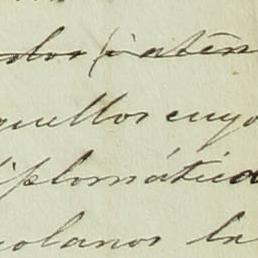 dos (i atén
quellos cuyo
iplomática
olanos la